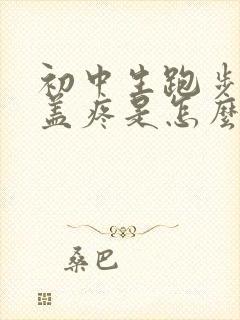 初中生跑步
盖疼是怎麼
桑巴